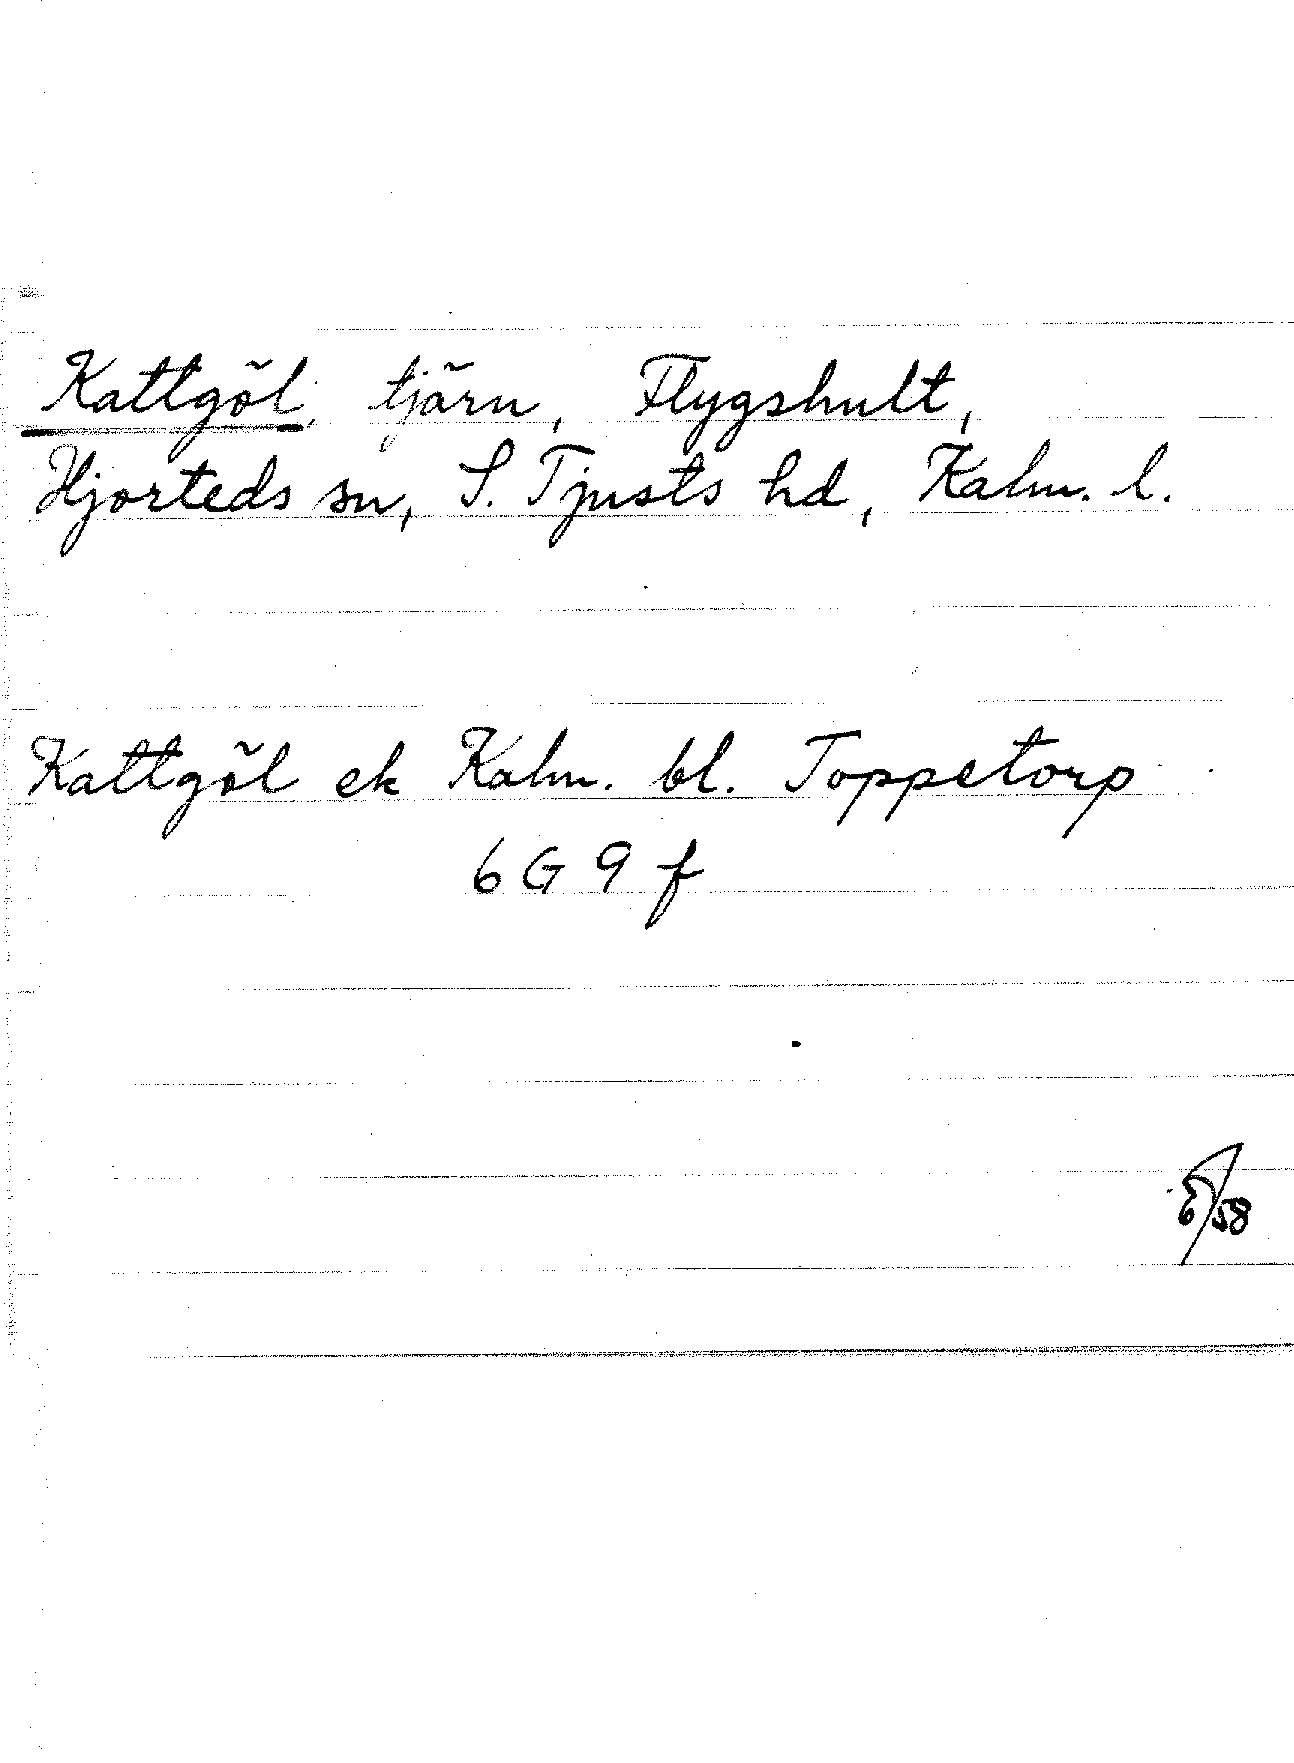 Kattgöl, tjärn, Flygshult,
Hjorteds sn, S. Tjusts hd, Kalm. l.
Kattgöl ek Kalm. bl. Toppetorp
6 G 9 f
/58